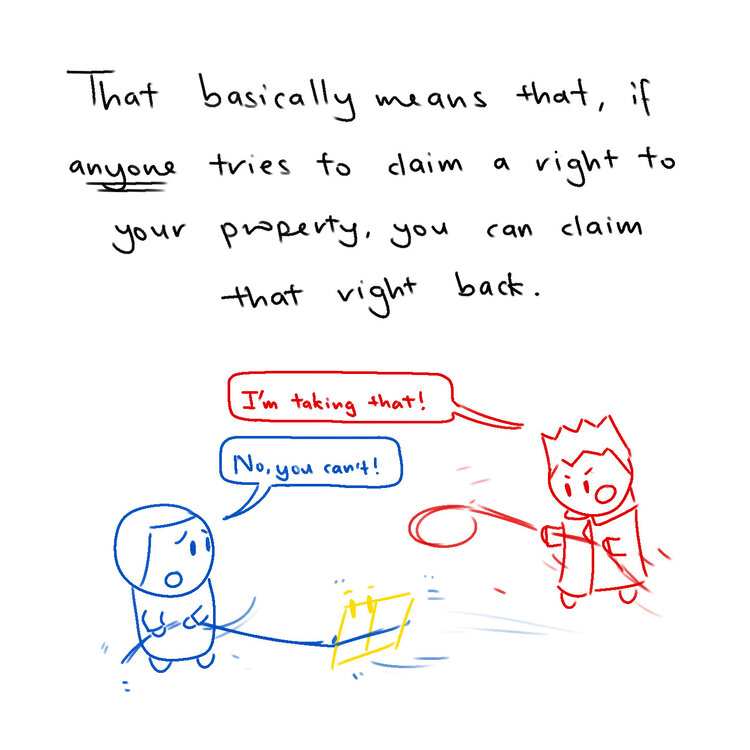 That basically means that, if
anyone tries to claim a right to
your property, you can claim
that right back.
I'm taking that!
No, you can't!